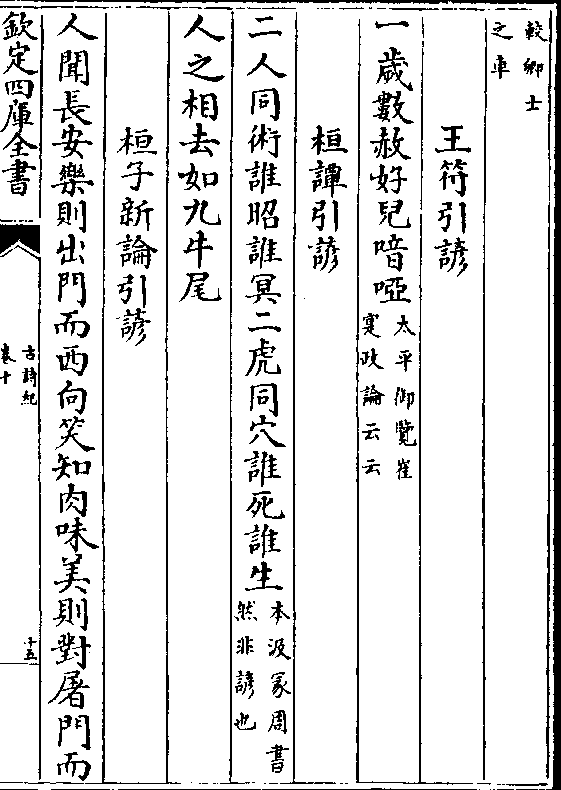 較鄉士
之車
王符引諺
一歲數赦好兒喑啞太平御覽崔
寔政論云云
桓譚引諺
二人同術誰昭誰冥二虎同穴誰死誰生本汲冢周書
然非諺也
人之相去如九牛尾
桓子新論引諺
人聞長安樂則出門而西向笑知肉味美則對屠門而
欽定四庫全書
古詩紀
卷十
十五